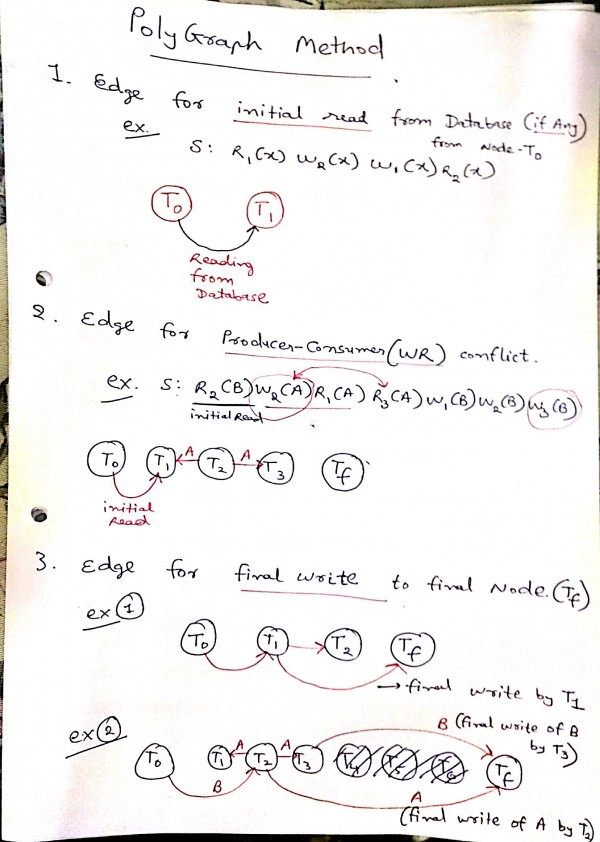 PolyGraph Method
1. Edge for initial read from Database (if Any)
from Node-T0
ex.
S: R1(x) W2(x) W1(x) R2(x)
T0 T1
Reading
from
Database
2. Edge for Producer-Consumer(WR) conflict.
ex. S: R2(B) W2(A) R1(A) R3(A) W1(B) W2(B) W3(B)
initial Read
T0 T1 A T2 A T3 Tf
initial
Read
3. Edge for final write to final Node.(Tf)
ex 1
T0 T1 T2 Tf
→ final write by T1
ex 2
B (final write of B
by T3)
T0 T1 A T2 A T3 Tf
B
A
(final write of A by T2)